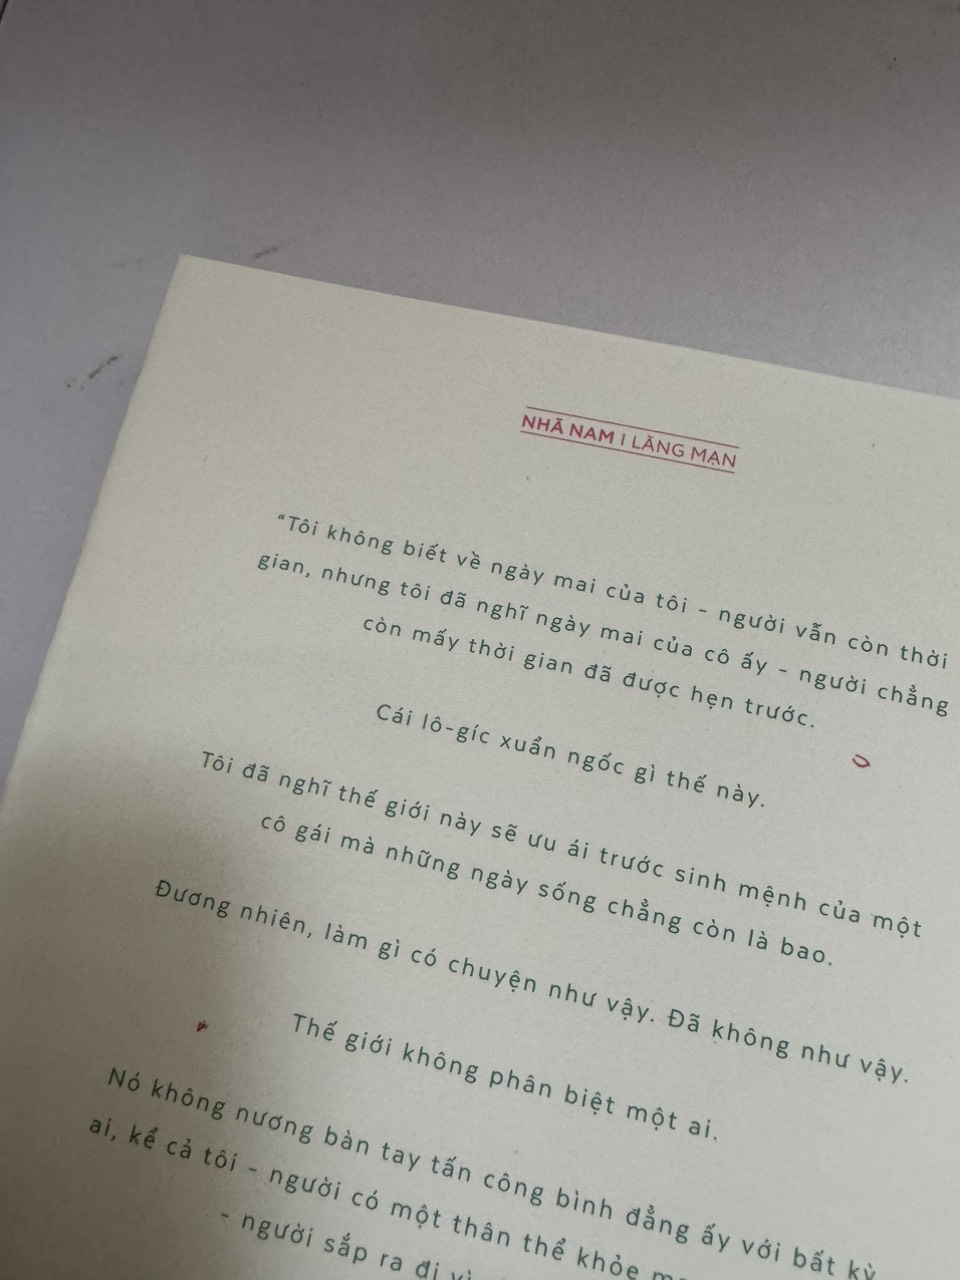 NHÃ NAM | LÃNG MẠN
“Tôi không biết về ngày mai của tôi - người vẫn còn thời
gian, nhưng tôi đã nghĩ ngày mai của cô ấy - người chẳng
còn mấy thời gian đã được hẹn trước.
Cái lô-gíc xuẩn ngốc gì thế này.
Tôi đã nghĩ thế giới này sẽ ưu ái trước sinh mệnh của một
cô gái mà những ngày sống chẳng còn là bao.
Đương nhiên, làm gì có chuyện như vậy. Đã không như vậy.
Thế giới không phân biệt một ai.
Nó không nương bàn tay tấn công bình đẳng ấy với bất kỳ
ai, kể cả tôi - người có một thân thể khỏe
- người sắp ra đi